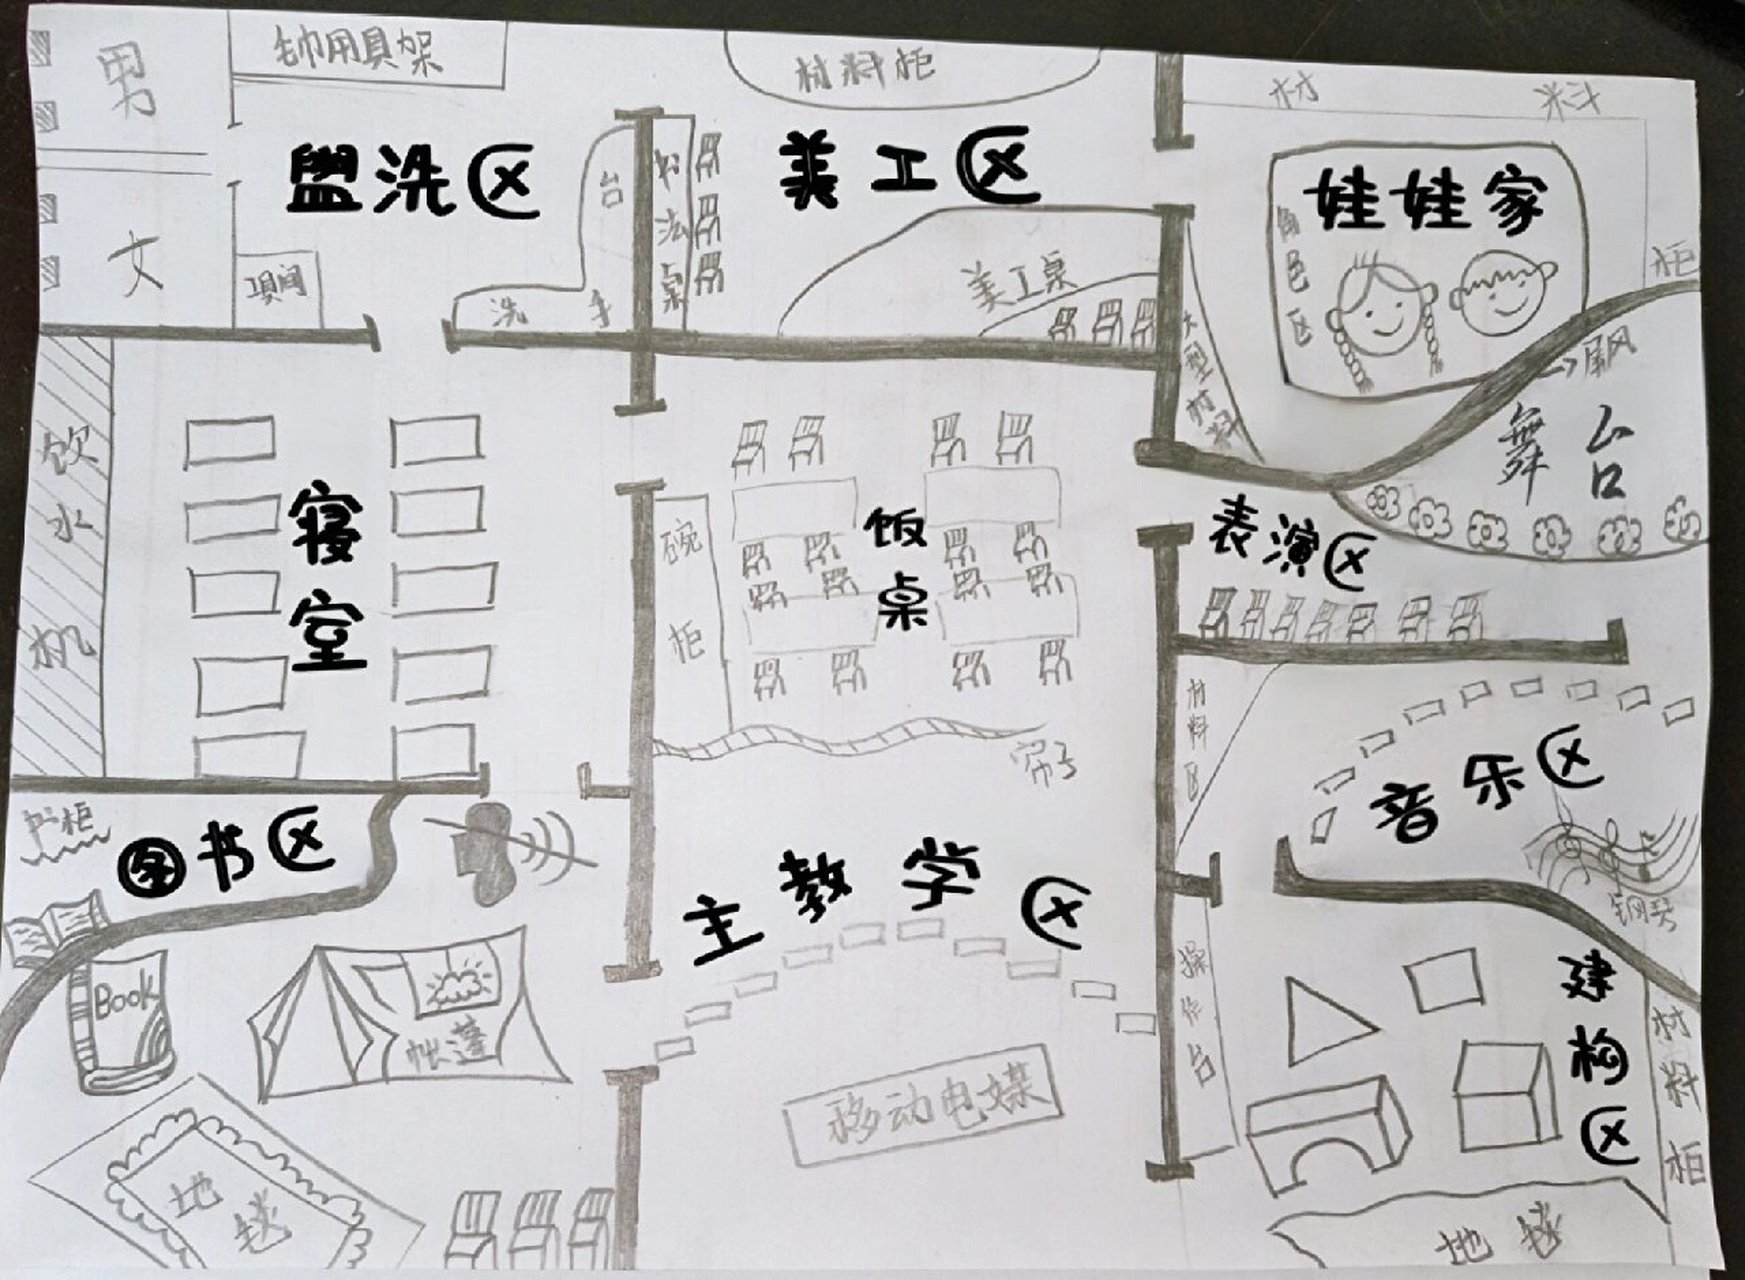 男
女
盥洗区
洗手台
书法桌
材料柜
美工区
美工桌
材料柜
娃娃家
角色区
大型材料
屏风
舞台
表演区
饮水机
寝室
碗柜
饭桌
帘子
材料区
音乐区
钢琴
书柜
图书区
Book
帐篷
地毯
主教学区
移动电媒
操作台
建构区
材料柜
地毯